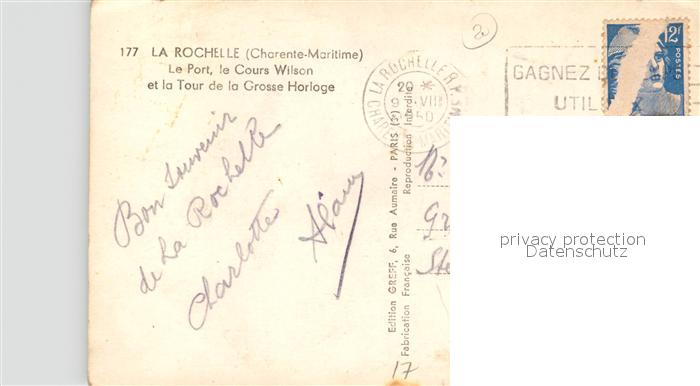 177 LA ROCHELLE (Charente-Maritime)
Le Port, le Cours Wilson
et la Tour de la Grosse Horloge
2
LA ROCHELLE R.P.
20 *
VIII
50
GAGNEZ
UTIL
12F
POSTES
Bon souvenir
de La Rochelle
Charlotte
Alain
Edition GREFF, 6, Rue Aumaire - PARIS (3e)
Fabrication Française Reproduction Interdite
17
Gr
Ste
privacy protection
Datenschutz